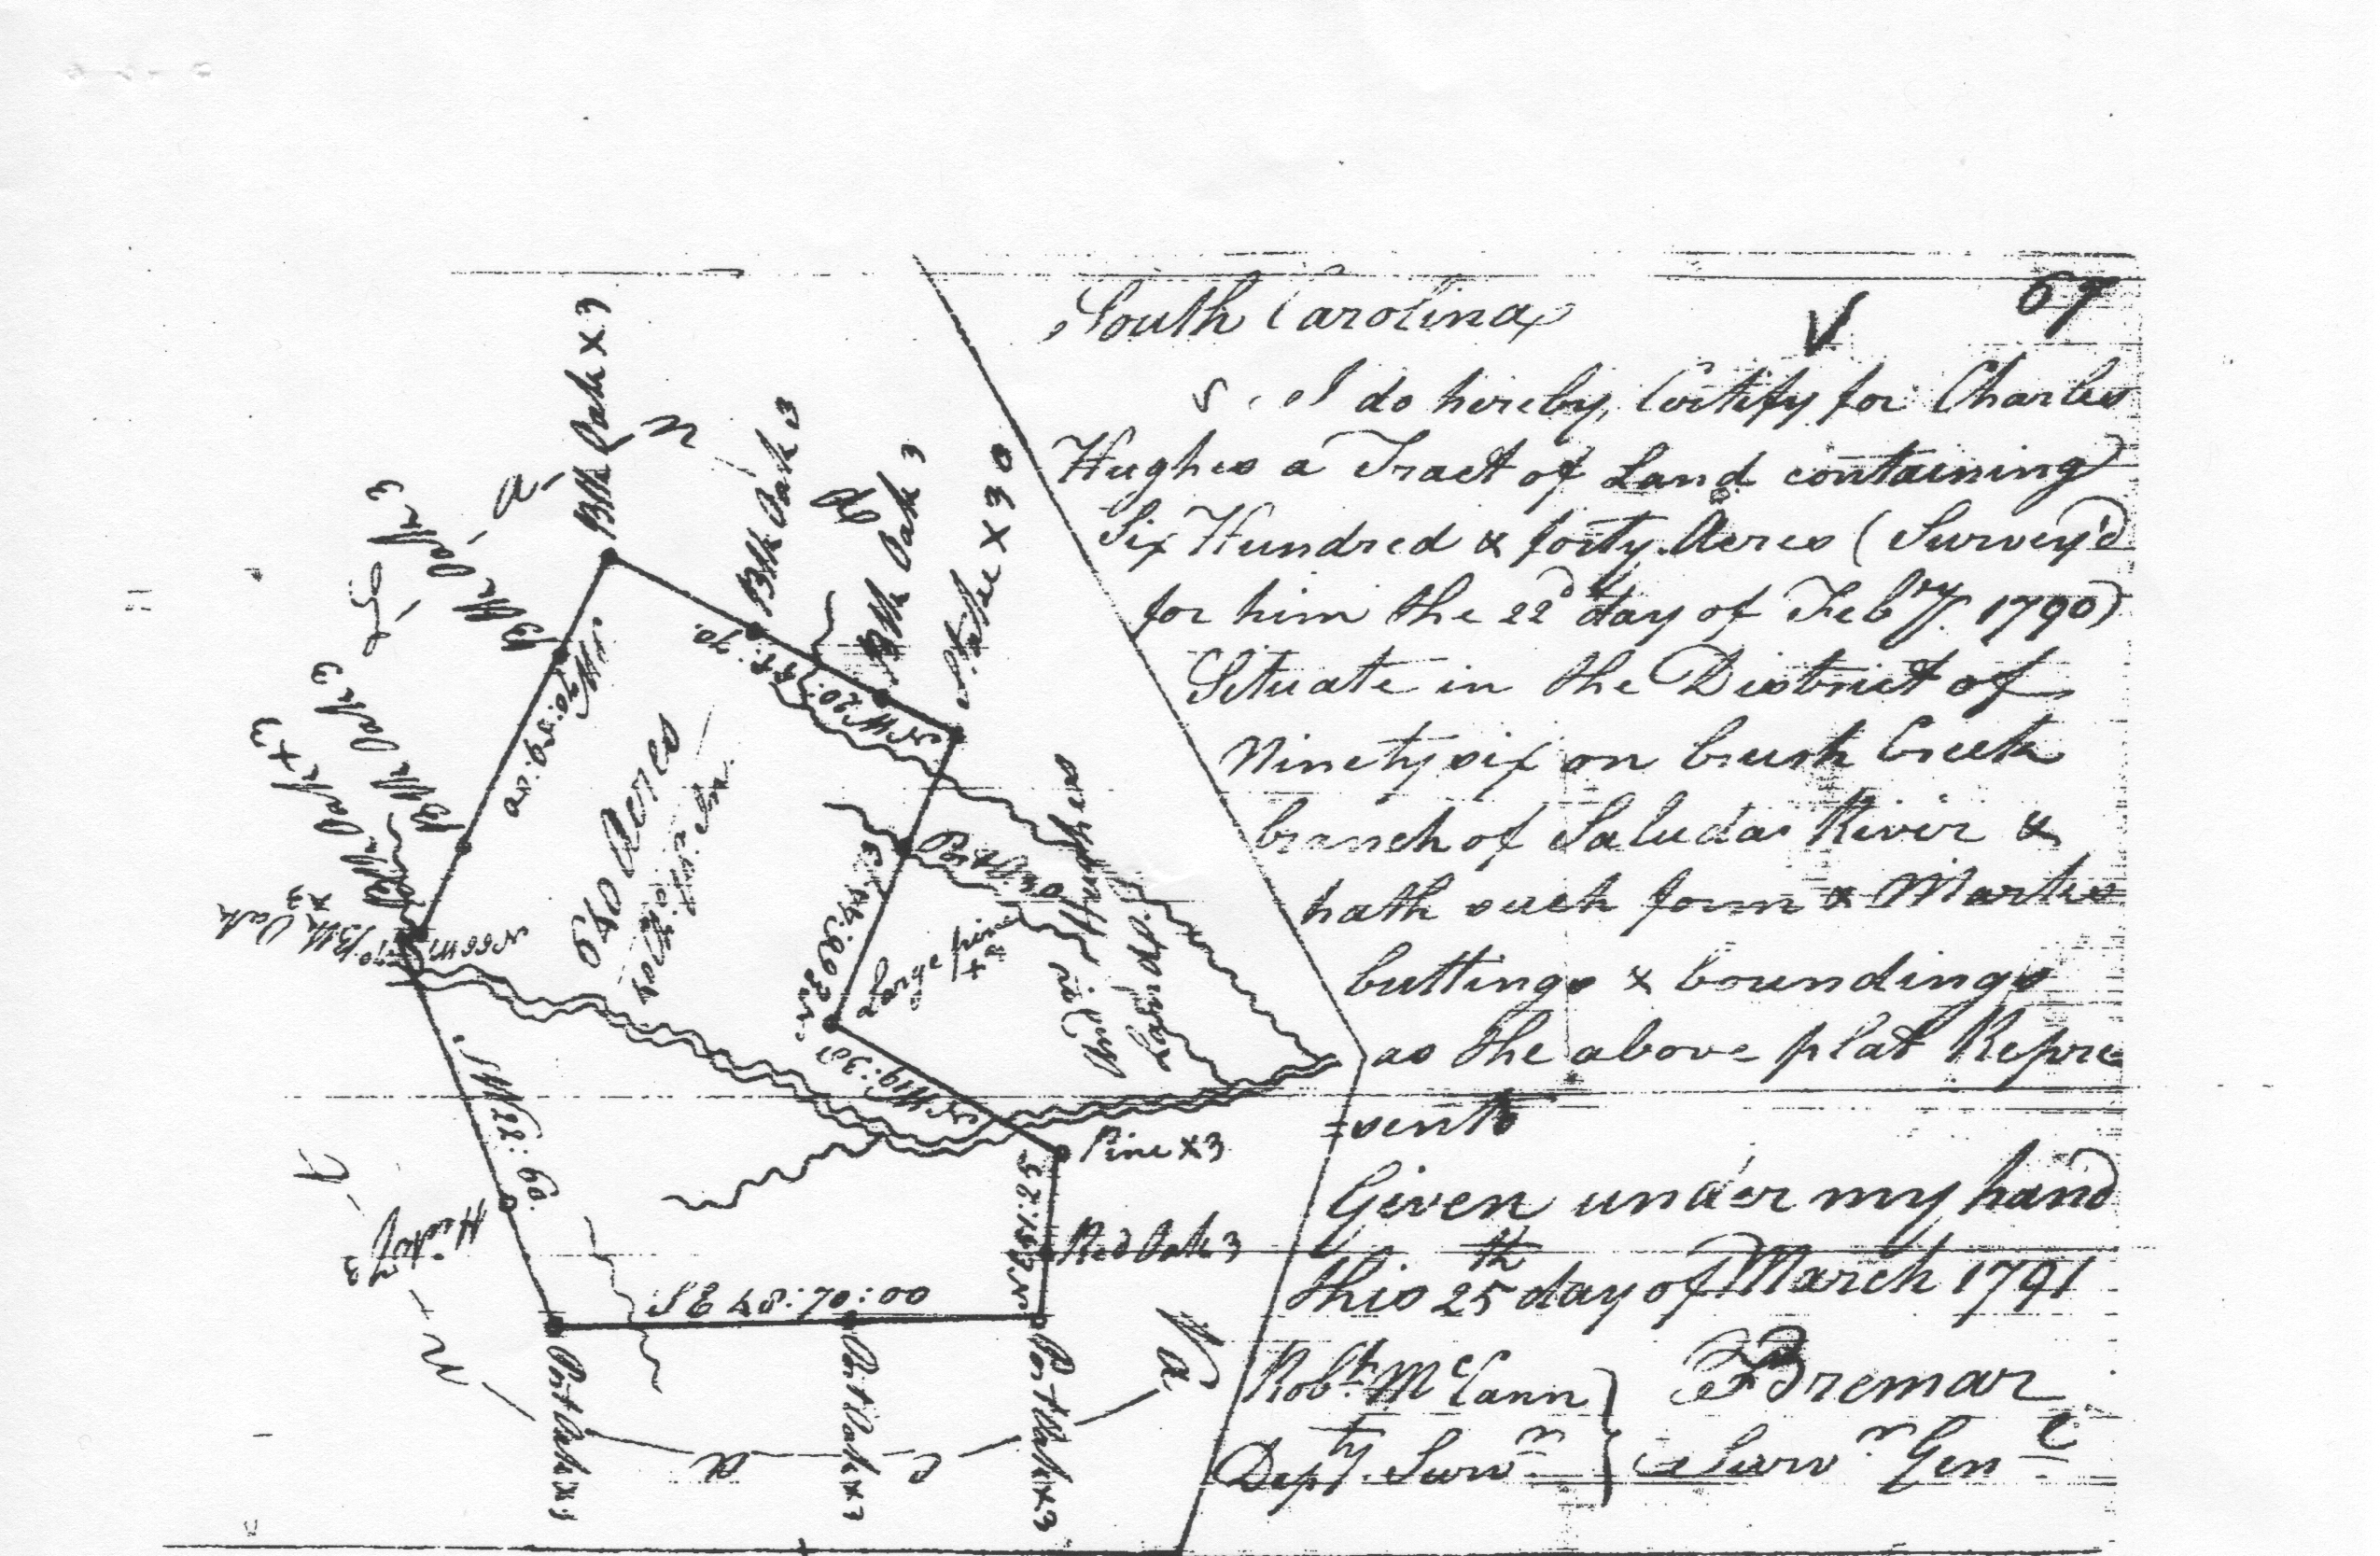 67
South Carolina
I do hereby Certify for Charles
Hughes a Tract of Land containing
Six Hundred & forty Acres (Survey'd
for him the 22d day of Febry. 1790)
Situate in the District of
Ninety six on brush Creek
branch of Saluda River &
hath such form & Marks
buttings & boundings
as the above plat Repre
=sents
Given under my hand
this 25th day of March 1791
Robt. McCann } F Bremar
Depty. Survr. } Survr. Genl
Blk Oak x 3
Blk Oak 3
Blk Oak 3
Stake x 3 0
Blk Oak 3
Blk Oak 3
Blk Oak x 3
640 Acres
Large pine
x 3
Pine x 3
Red Oak 3
SE 48:70:00
Hickry 3
Post Oak x 3
Post Oak x 3
Post Oak x 3
V a c a n t
L a n d